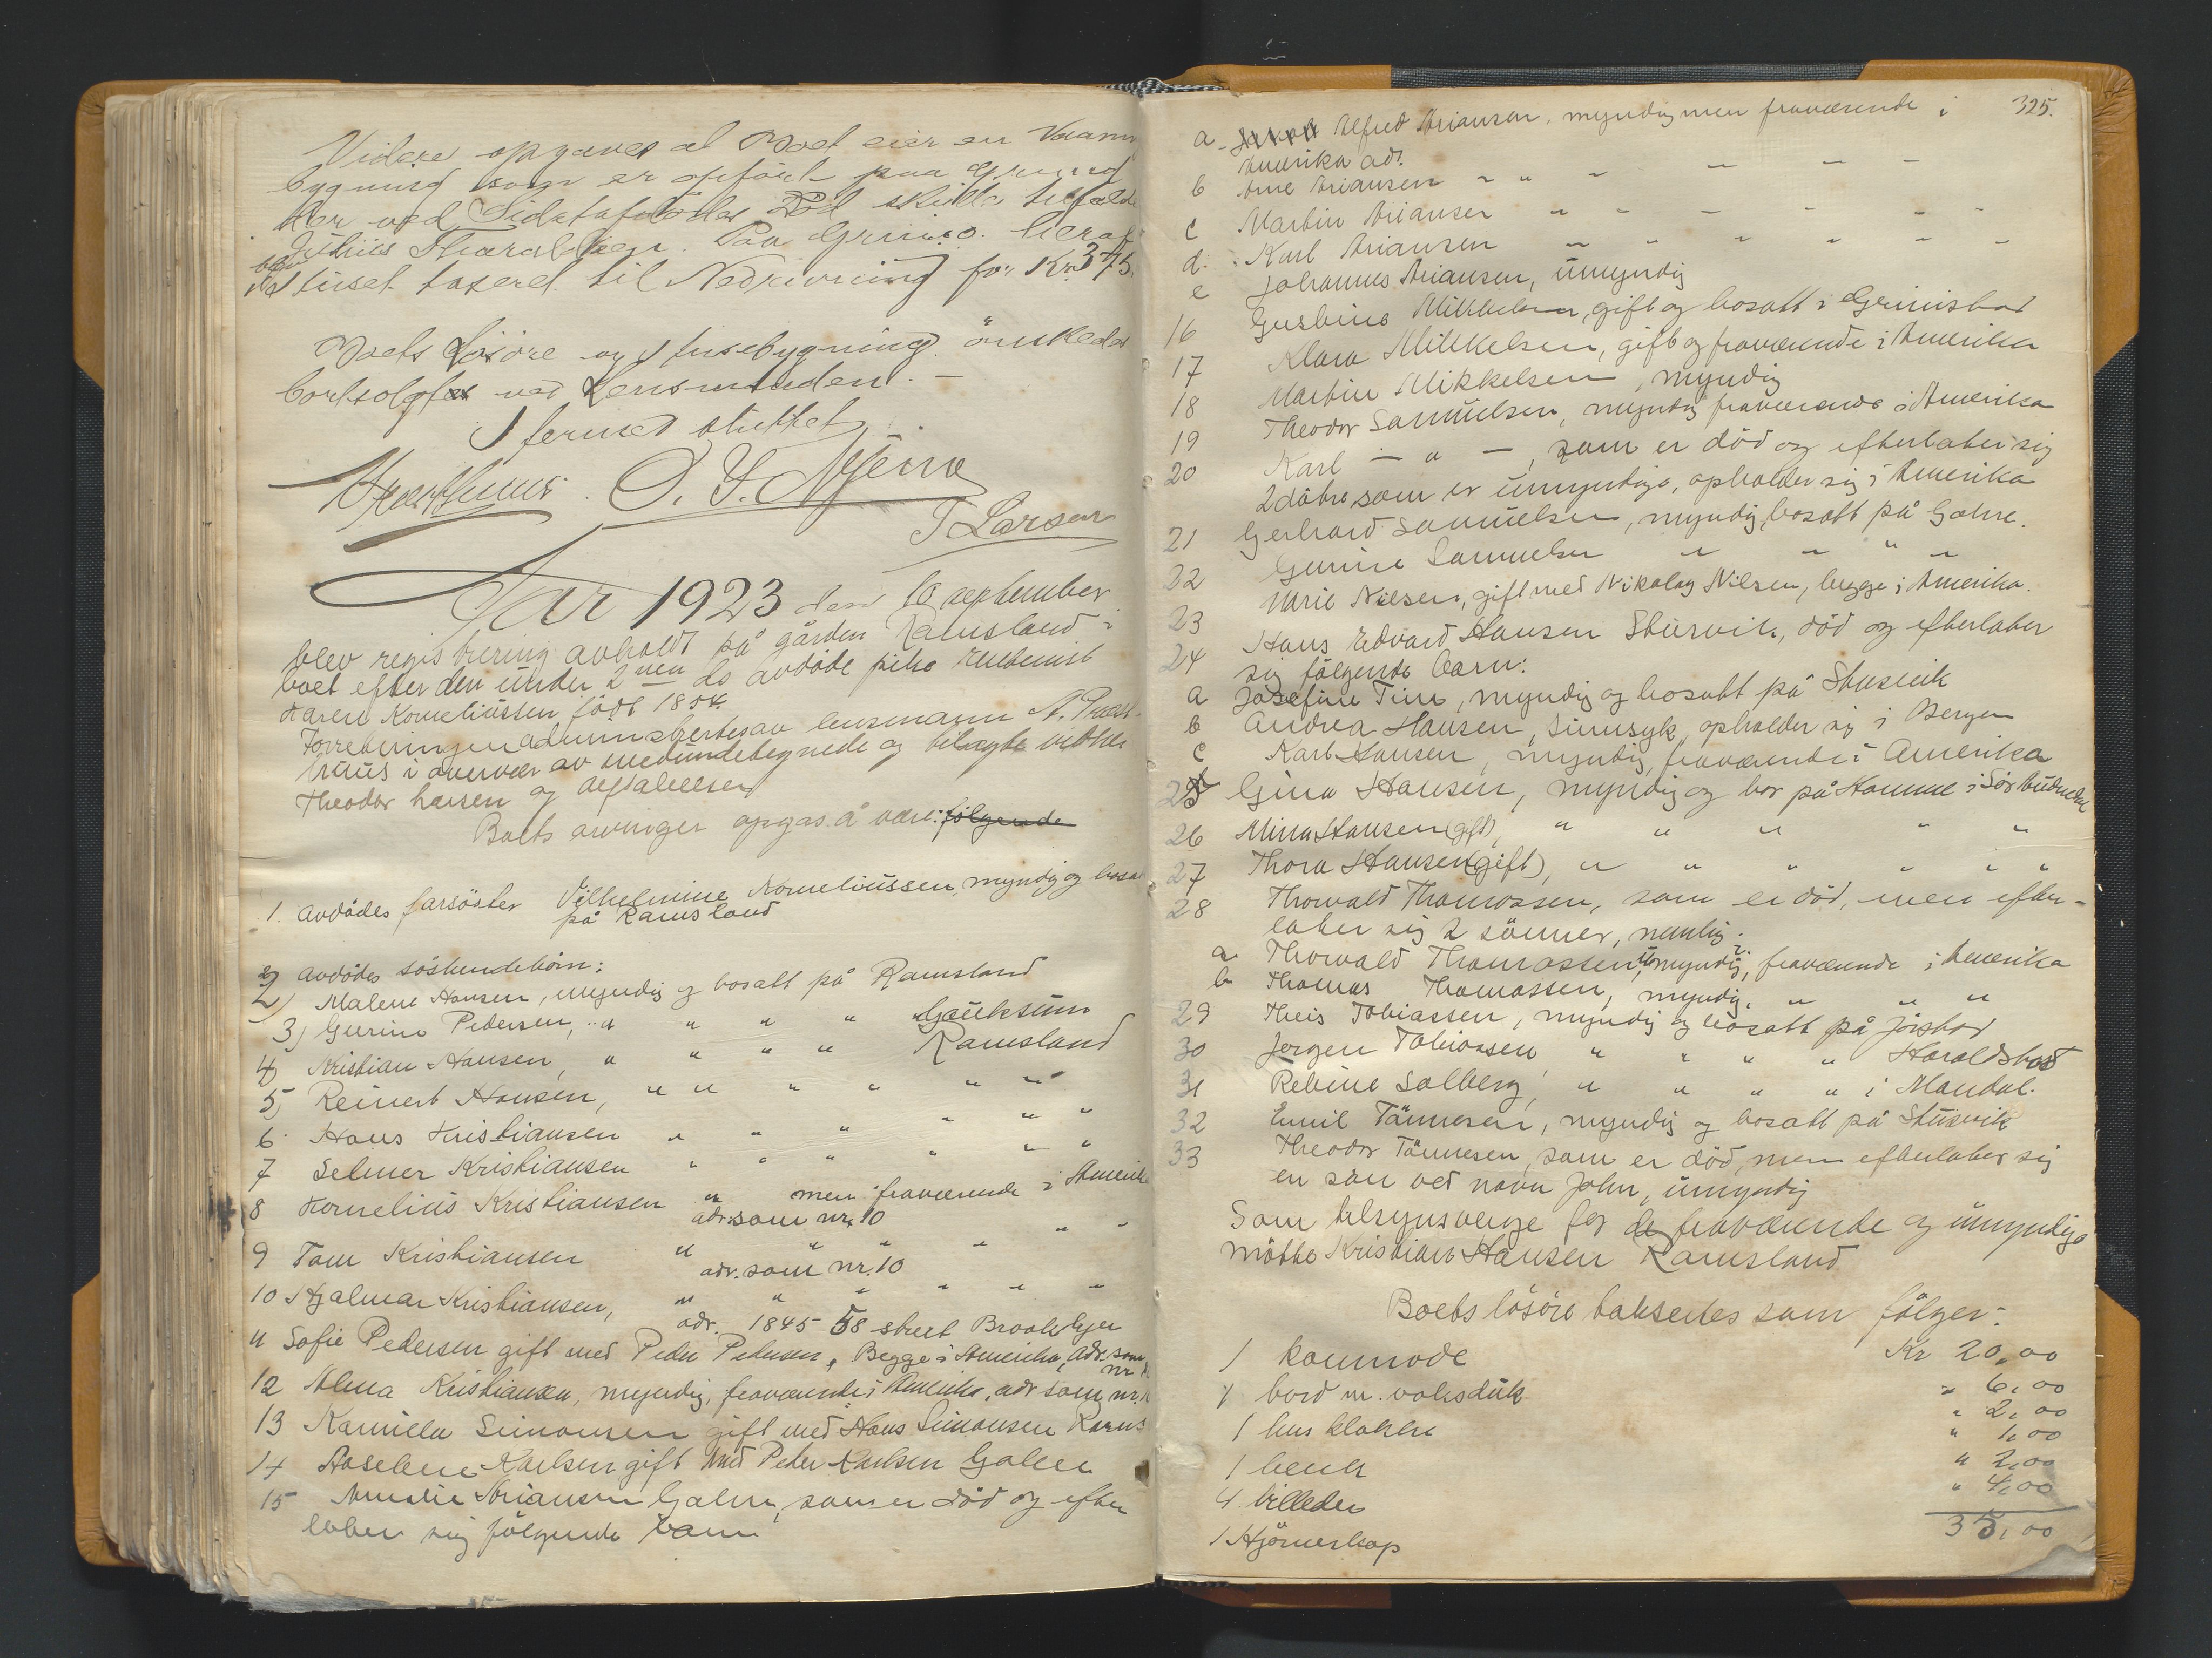 Videre opgaves at Boet eier en Vaaning
bygning som er opført paa Grund
der ved Sidstafdødes Død skulle tilfalde
Julius Tharaldsen. Paa Grund heraf
blev Huset taxeret til Nedrivning for Kr. 375.
Boets Løsøre og Husebygning ønskedes
bortsolgtes ved Lensmanden. -
Iferniet sluttet
T Larsen
Aar 1923 den 10 september
blev registrering avholdt på gården Ramsland i
boet efter den under 2nen ds avdøde pike
Karen Korneliussen født 1854.
Forretningen administrertes av lensmann A. Præst-
huus i overvær av medundertegnede og tilkaldte vidner
Theodor Larsen og
Boets arvinger opgas å være: følgende
1. avdødes farsøster Vilhelmine Korneliussen, myndig og bosat
på Ramsland
2) avdødes søskendebørn:
2) Malene Hansen, myndig og bosatt på Ramsland
3) Gurine Pedersen, " " " " " Gauksum
4) Kristian Hansen, " " " " Ramsland
5) Reinert Hansen, " " " " " "
6. Hans Kristiansen " " " " " "
7 Selmer Kristiansen " " " " " "
8 Kornelius Kristiansen " men fraværende i Amerika
adr. som nr. 10
9 Tom Kristiansen " " " " " "
adr. som nr. 10
10 Hjalmar Kristiansen, " " " " " "
adr. 1845 58 street Brooklyn
11 Sofie Pedersen gift med Peder Pedersen, Begge i Amerika, adr. som
nr
12 Alma Kristiansen, myndig, fraværende i Amerika, adr som nr. 10
13 Kamilla Simonsen gift med Hans Simonsen Rams
14 Aseline Karlsen gift med Peder Karlsen Gahre
15 Amalie Ariansen Gahre, som er død og efter
later sig følgende barn
325.
a - Alfred Ariansen, myndig men fraværende i
Amerika adr.
b Arne Ariansen " " " - - -
c Martin Ariansen - - - - - -
d. Karl Ariansen - " " " - -
e Johannes Ariansen, umyndig
16 Gustine Mikkelsen gift og bosatt i Grimstad
17 Klara Mikkelsen, gift og fraværende i Amerika
18 Martin Mikkelsen, myndig
19 Theodor Samuelsen, myndig fraværende i Amerika
20 Karl - " -, som er død og efterlater sig
2 døtre som er umyndige, opholder sig i Amerika
21 Gerhard Samuelsen, myndig, bosatt på Gahre.
22 Gurine Samuelsen " " " "
23 Marie Nilsen, gift med Nikolay Nilsen, begge i Amerika.
24 Hans Edvard Hansen Stusvik, død og efterlater
sig følgende barn:
a Josefine Tine, myndig og bosatt på Stusvik
b Andrea Hansen, sinnsyk, opholder sig i Bergen
c Karl Hansen, myndig, fraværende i Amerika
25 Gina Hansen, myndig og bor på Homme i Sør Audnedal
26 Mina Hansen (gift), " " " " "
27 Thora Hansen (gift), " " " " " "
28 Thorvald Thomassen, som er død, men efter-
later sig 2 sønner, nemlig.
a Thorvald Thomassen, umyndig, fraværende i Amerika
b Thomas Thomassen, myndig, " " "
29 Theis Tobiassen, myndig og bosatt på Jørstad
30 Jørgen Tobiassen " " " " Haraldstad
31 Rebine Salberg, " " " " i Mandal.
32 Emil Tønnesen, myndig og bosatt på Stusvik
33 Theodor Tønnesen, som er død, men efterlater sig
en søn ved navn John, umyndig
Som tilsynsverge for de fraværende og umyndige
møtte Kristian Hansen Ramsland
Boets løsøre takseredes som følger:
1 kommode Kr 20,00
1 bord m. voksduk " 6,00
1 hus klokke " 2,00
1 benk " 1,00
4 billeder " 2,00
1 Hjørneskap " 4,00
35,00